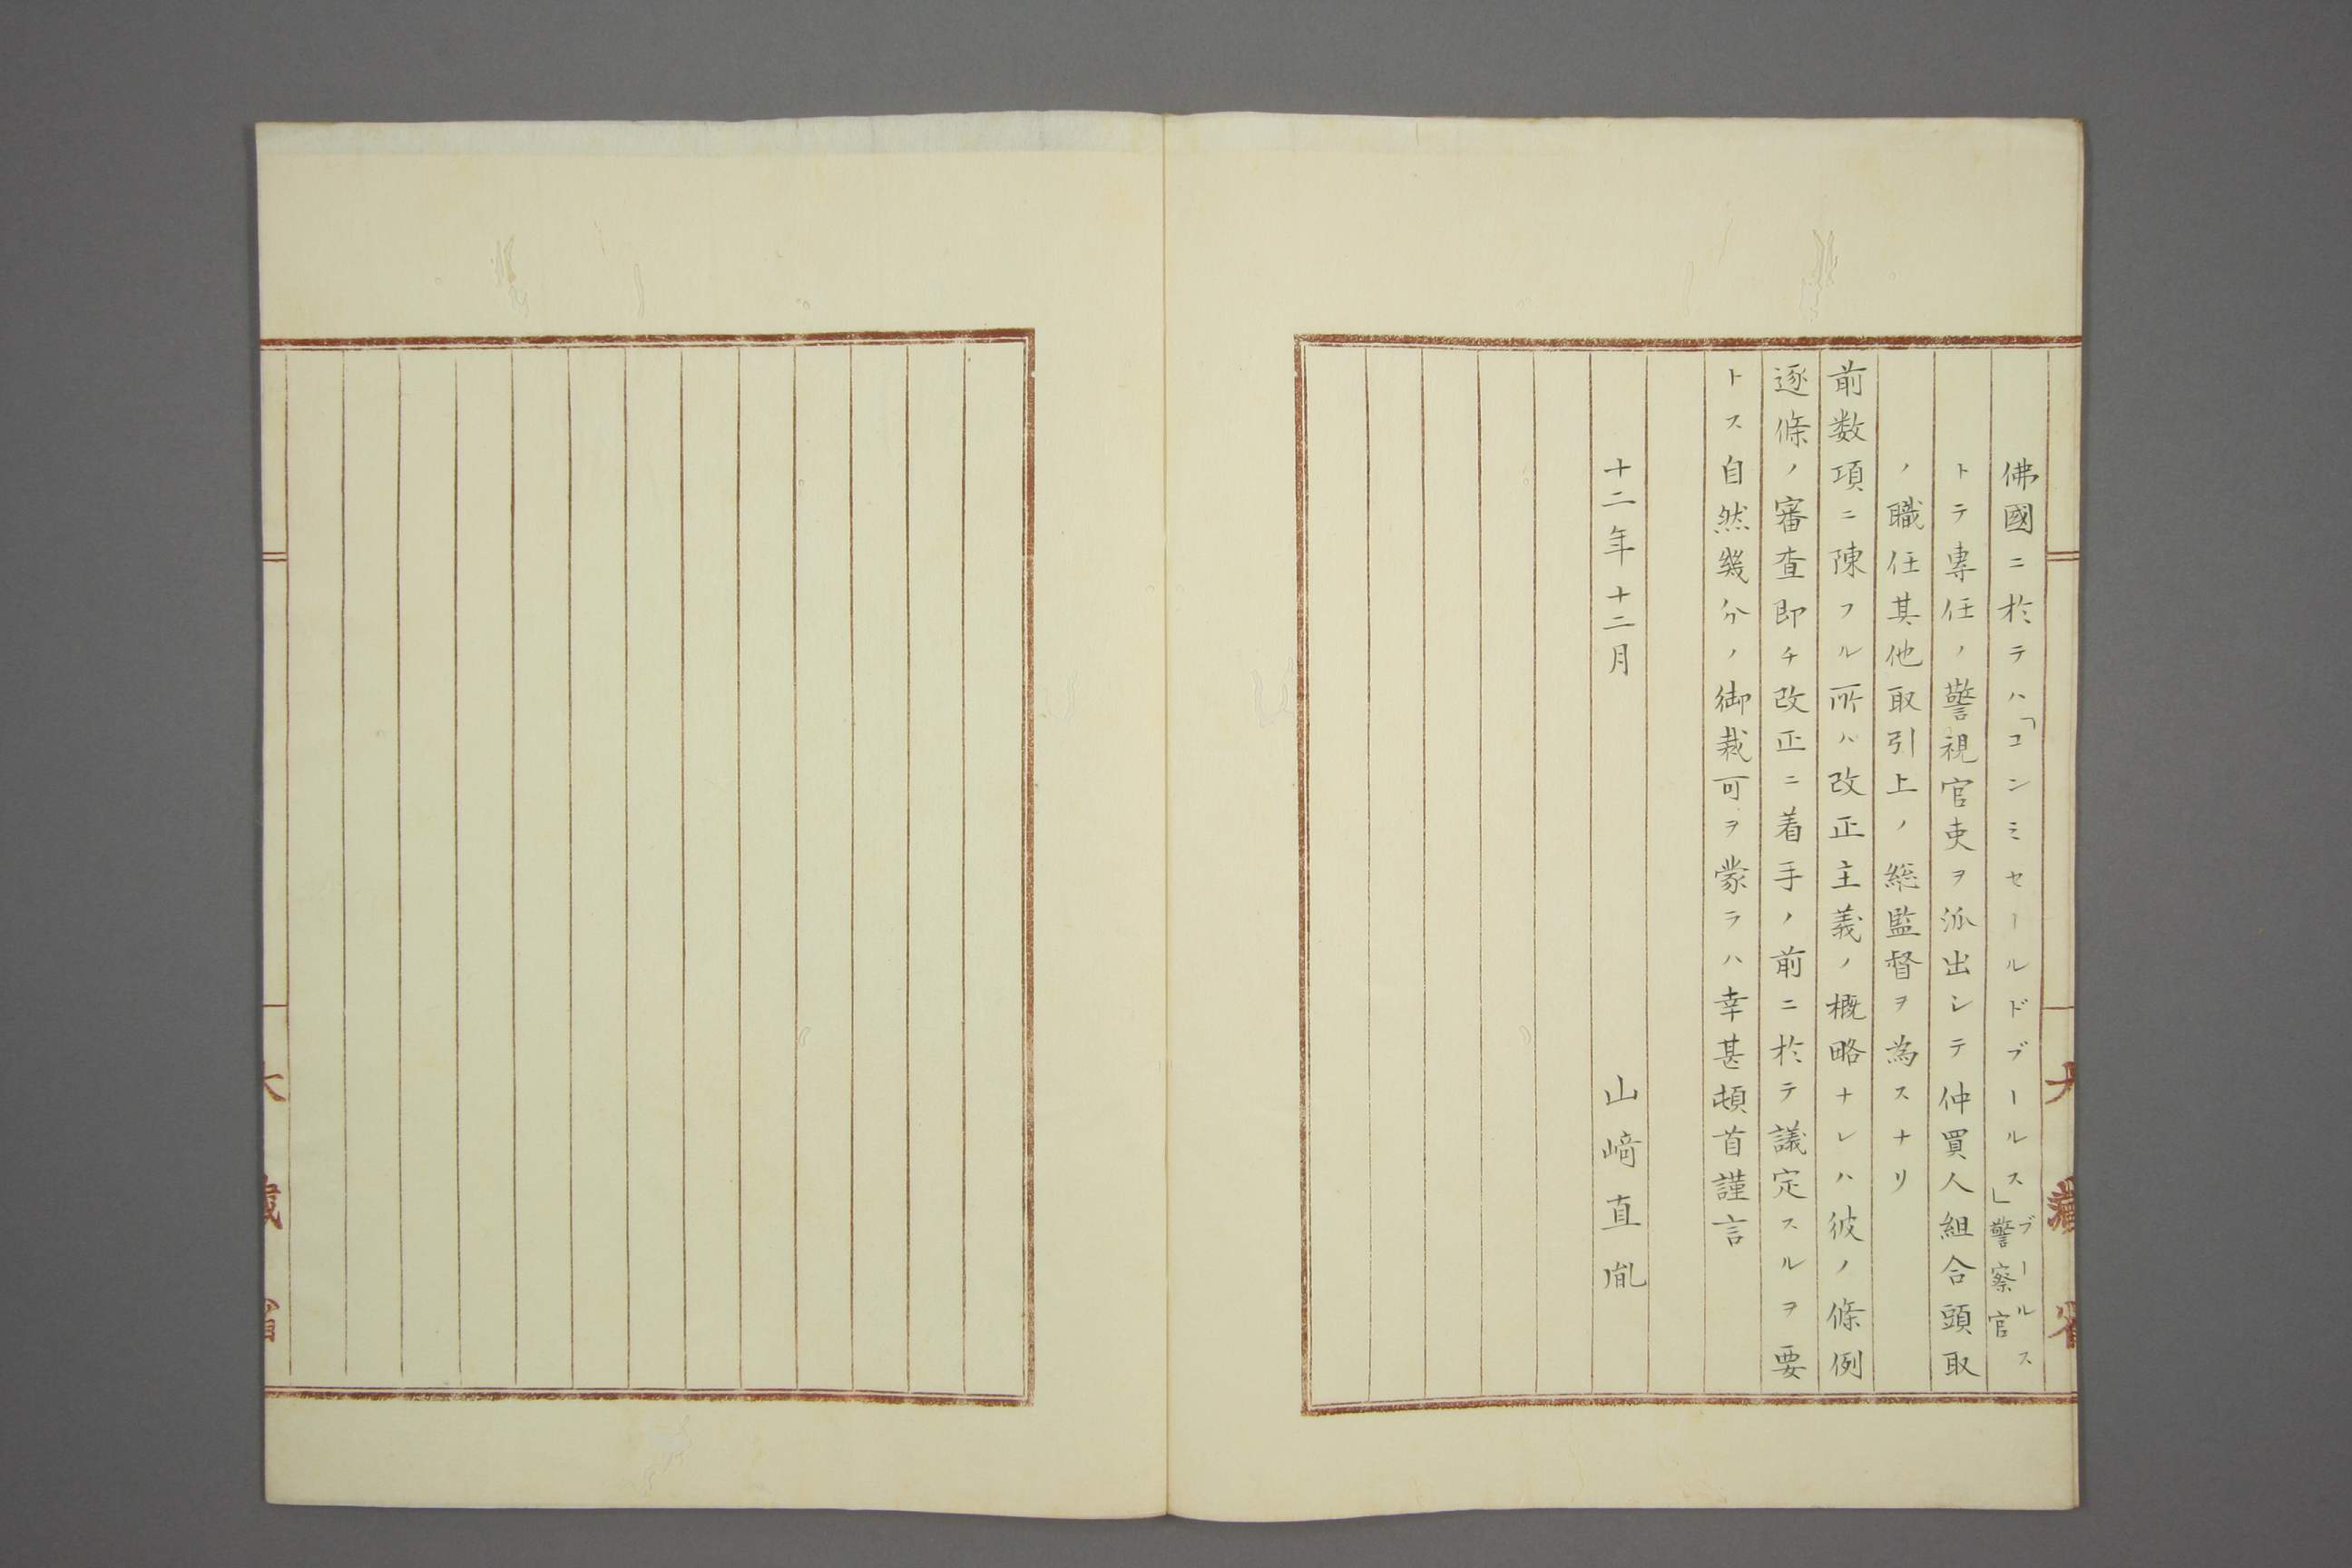 佛國ニ於テハ「コンミセールドブールス」ブールス警察官
トテ專任ノ警視官吏ヲ派出シテ仲買人組合頭取
ノ職任其他取引上ノ総監督ヲ為スナリ
前数項ニ陳フル所ハ改正主義ノ概略ナレハ彼ノ條例
逐條ノ審査即チ改正ニ着手ノ前ニ於テ議定スルヲ要
トス自然幾分ノ御裁可ヲ蒙ラハ幸甚頓首謹言
十二年十二月
山﨑直胤
大藏省
大藏省